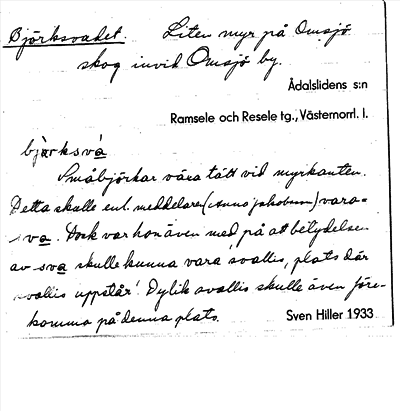 Björksvadet. Liten myr på Omsjö
skog invid Omsjö by.
Ådalslidens s:n
Ramsele och Resele tg., Västernorrl. l.
bjærksvá
Småbjörkar växa tätt vid myrkanten.
Detta skulle enl. meddelaren (Anna Jakobsson) vara
sva. Dock var hon även med på att betydelsen
av sva skulle kunna vara 'svallis, plats där
svallis uppstår'. Dylik svallis skulle även före-
komma på denna plats.
Sven Hiller 1933